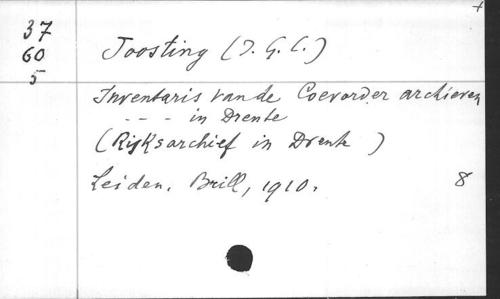 +
37
60
5
Joosting (J. G. C.)
Inventaris van de Coevorder archieven
- - - in Drente
(Rijksarchief in Drente )
Leiden, Brill, 1910. 8